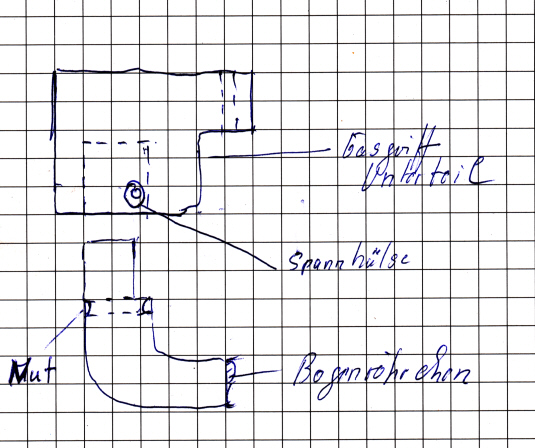 Gasgriff
Unterteil
Spannhülse
Nut
Bogenröhrchen